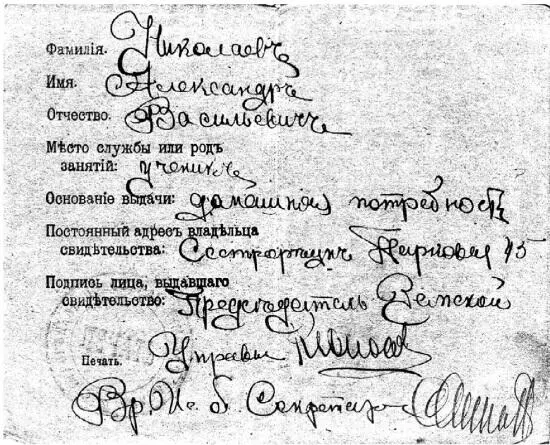 Фамилія. Николаевъ
Имя. Александръ
Отчество. Васильевичъ
Мѣсто службы или родъ
занятій: ученикъ
Основаніе выдачи: домашная потребность
Постоянный адресъ владѣльца
свидѣтельства: Сестрорѣцкъ Парковая 15
Подпись лица, выдавшаго
свидѣтельство: Предсѣдатель Земской
Печать. Управы
Вр. И. об. Секретаря